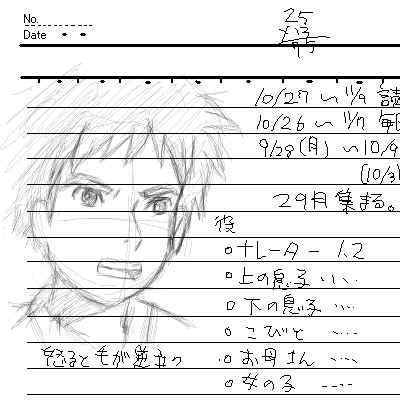 No.
Date
25
×13
75
10/27 〜 11/9 読
10/26 〜 11/7 毎
9/28(月) 〜 10/4
(10/3)
29月集まる。
役
○ナレーター 1.2
○上の息子 ....
○下の息子 ....
○こびと ....
怒ると毛が逆立つ
○お母さん ....
○女の子 ----